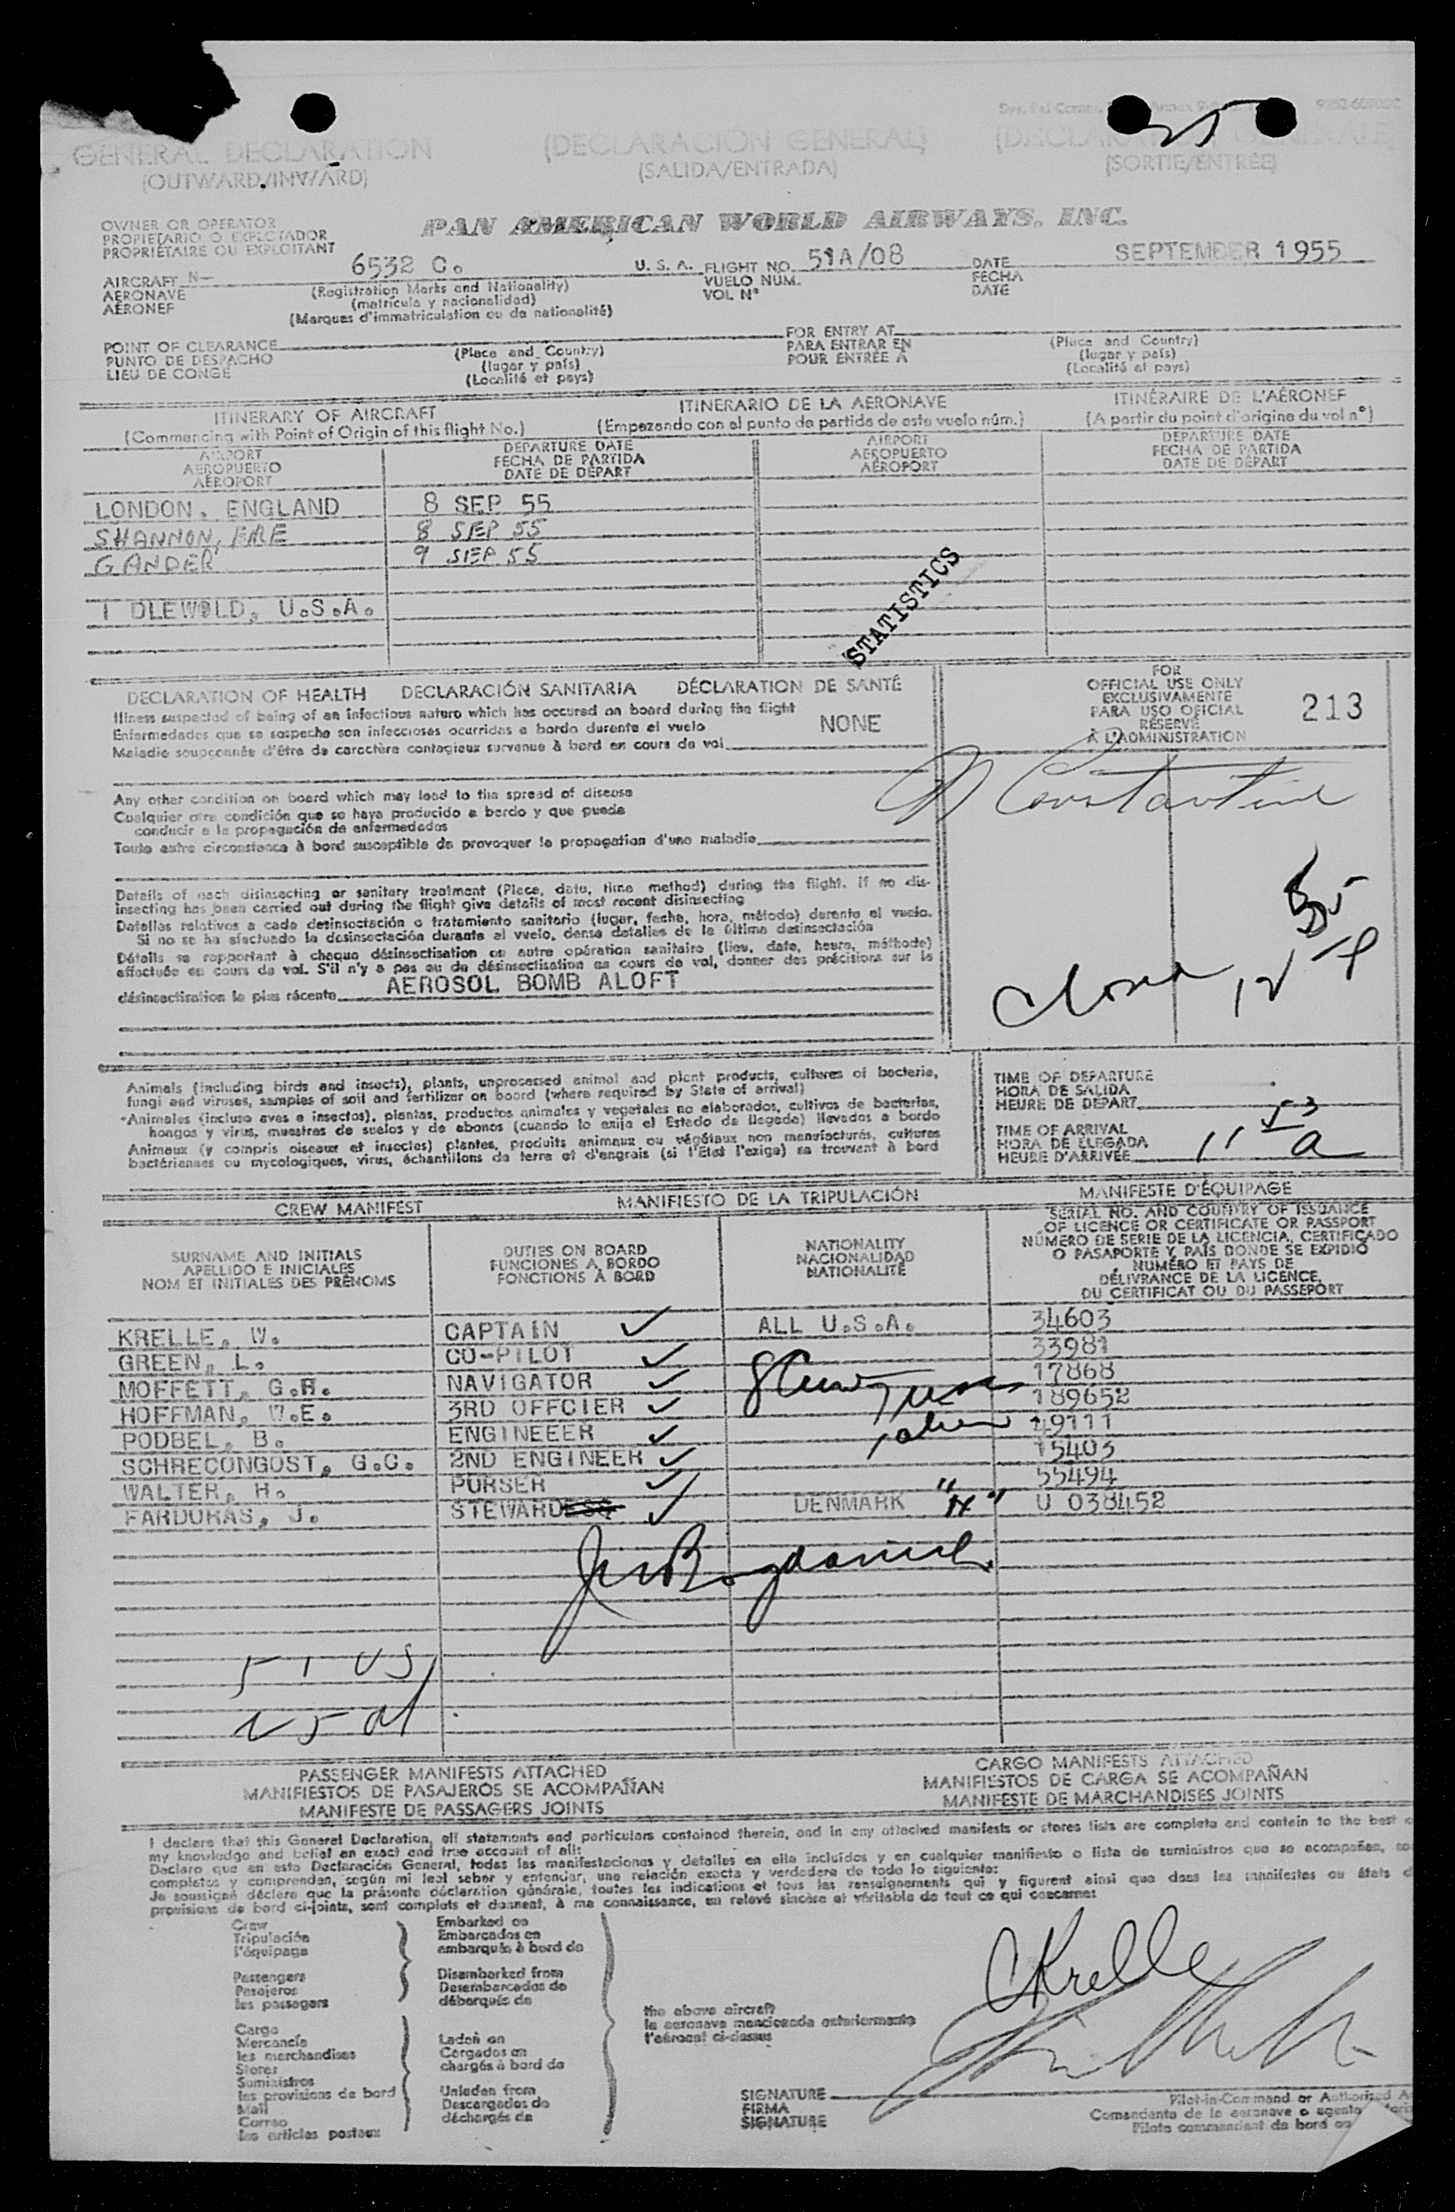 25
GENERAL DECLARATION
(OUTWARD/INWARD)
(DECLARACIÓN GENERAL)
(SALIDA/ENTRADA)
(SORTIE/ENTRÉE)
OWNER OR OPERATOR
PROPIETARIO O EXPLOTADOR
PROPRIÉTAIRE OU EXPLOITANT
PAN AMERICAN WORLD AIRWAYS, INC.
AIRCRAFT N—
AERONAVE
AÉRONEF
6532 C. U. S. A.
(Registration Marks and Nationality)
(matrícula y nacionalidad)
(Marques d'immatriculation ou de nationalité)
FLIGHT NO. 51A/08
VUELO NUM.
VOL Nº
DATE SEPTEMBER 1955
FECHA
DATE
POINT OF CLEARANCE
PUNTO DE DESPACHO
LIEU DE CONGÉ
(Place and Country)
(lugar y país)
(Localité et pays)
FOR ENTRY AT
PARA ENTRAR EN
POUR ENTRÉE A
(Place and Country)
(lugar y país)
(Localité et pays)
ITINERARY OF AIRCRAFT
(Commencing with Point of Origin of this flight No.)
ITINERARIO DE LA AERONAVE
(Empezando con el punto de partida de este vuelo núm.)
ITINÉRAIRE DE L'AÉRONEF
(A partir du point d'origine du vol nº)
AIRPORT
AEROPUERTO
AÉROPORT
DEPARTURE DATE
FECHA DE PARTIDA
DATE DE DÉPART
AIRPORT
AEROPUERTO
AÉROPORT
DEPARTURE DATE
FECHA DE PARTIDA
DATE DE DÉPART
LONDON, ENGLAND 8 SEP 55
SHANNON, EIRE 8 SEP 55
GANDER 9 SEP 55
I DLEWOLD, U.S.A.
STATISTICS
DECLARATION OF HEALTH DECLARACIÓN SANITARIA DÉCLARATION DE SANTÉ
Illness suspected of being of an infectious nature which has occured on board during the flight
Enfermedades que se sospecha son infecciosas ocurridas a bordo durante el vuelo
Maladie soupçonnée d'être de caractère contagieux survenue à bord en cours de vol
NONE
FOR
OFFICIAL USE ONLY
EXCLUSIVAMENTE
PARA USO OFICIAL
RÉSERVÉ
À L'ADMINISTRATION
213
Any other condition on board which may lead to the spread of disease
Cualquier otra condición que se haya producido a bordo y que pueda
conducir a la propagación de enfermedades
Toute autre circonstance à bord susceptible de provoquer la propagation d'une maladie
Constantine
Details of each disinsecting or sanitary treatment (Place, date, time method) during the flight. If no dis-
insecting has been carried out during the flight give details of most recent disinsecting
Detalles relativos a cada desinsectación o tratamiento sanitario (lugar, fecha, hora, método) durante el vuelo.
Si no se ha efectuado la desinsectación durante el vuelo, dense detalles de la última desinsectación
Détails se rapportant à chaque désinsectisation ou autre opération sanitaire (lieu, date, heure, méthode)
effectuée en cours de vol. S'il n'y a pas eu de désinsectisation en cours de vol, donner des précisions sur la
désinsectisation la plus récente AEROSOL BOMB ALOFT
Animals (including birds and insects), plants, unprocessed animal and plant products, cultures of bacteria,
fungi and viruses, samples of soil and fertilizer on board (where required by State of arrival)
Animales (incluso aves e insectos), plantas, productos animales y vegetales no elaborados, cultivos de bacterias,
hongos y virus, muestras de suelos y de abonos (cuando lo exija el Estado de llegada) llevados a bordo
Animaux (y compris oiseaux et insectes) plantes, produits animaux ou végétaux non manufacturés, cultures
bactériennes ou mycologiques, virus, échantillons de terre et d'engrais (si l'État l'exige) se trouvant à bord
TIME OF DEPARTURE
HORA DE SALIDA
HEURE DE DEPART
TIME OF ARRIVAL
HORA DE LLEGADA
HEURE D'ARRIVÉE
11 53 a
CREW MANIFEST MANIFIESTO DE LA TRIPULACIÓN MANIFESTE D'ÉQUIPAGE
SURNAME AND INITIALS
APELLIDO E INICIALES
NOM ET INITIALES DES PRÉNOMS
DUTIES ON BOARD
FUNCIONES A BORDO
FONCTIONS À BORD
NATIONALITY
NACIONALIDAD
NATIONALITÉ
SERIAL NO. AND COUNTRY OF ISSUANCE
OF LICENCE OR CERTIFICATE OR PASSPORT
NÚMERO DE SERIE DE LA LICENCIA, CERTIFICADO
O PASAPORTE Y PAÍS DONDE SE EXPIDIÓ
NUMÉRO ET PAYS DE
DÉLIVRANCE DE LA LICENCE,
DU CERTIFICAT OU DU PASSEPORT
KRELLE, W. CAPTAIN ALL U.S.A. 34603
GREEN, L. CO-PILOT 33981
MOFFETT, G.H. NAVIGATOR 17868
HOFFMAN, W.E. 3RD OFFCIER 189652
PODBEL, B. ENGINEEER 49111
SCHRECONGOST, G.C. 2ND ENGINEER 15403
WALTER, H. PURSER 55494
FARDURAS, J. STEWARDESS DENMARK U 038452
PASSENGER MANIFESTS ATTACHED
MANIFIESTOS DE PASAJEROS SE ACOMPAÑAN
MANIFESTE DE PASSAGERS JOINTS
CARGO MANIFESTS ATTACHED
MANIFIESTOS DE CARGA SE ACOMPAÑAN
MANIFESTE DE MARCHANDISES JOINTS
I declare that this General Declaration, all statements and particulars contained therein, and in any attached manifests or stores lists are complete and contain to the best o
my knowledge and belief an exact and true account of all:
Declaro que en esta Declaración General, todas las manifestaciones y detalles en ella incluídos y en cualquier manifiesto o lista de suministros que se acompañan, so
completos y comprenden, según mi leal saber y entender, una relación exacta y verdadera de todo lo siguiente:
Je soussigné déclare que la présente déclaration générale, toutes les indications et tous les renseignements qui y figurent ainsi que dans les manifestes ou états d
provisions de bord ci-joints, sont complets et donnent, à ma connaissance, un relevé sincère et véritable de tout ce qui concerne:
Crew
Tripulación
l'équipage
Passengers
Pasajeros
les passagers
Cargo
Mercancía
les marchandises
Stores
Suministros
les provisions de bord
Mail
Correo
les articles postaux
Embarked on
Embarcados en
embarqués à bord de
Disembarked from
Desembarcados de
débarqués de
Laden on
Cargados en
chargés à bord de
Unladen from
Descargados de
déchargés de
the above aircraft
la aeronave mencionada anteriormente
l'aéronef ci-dessus
Krelle
SIGNATURE
FIRMA
SIGNATURE
Pilot-in-Command or Authorised A
Comandante de la aeronave o agente
Pilote commandant de bord ou